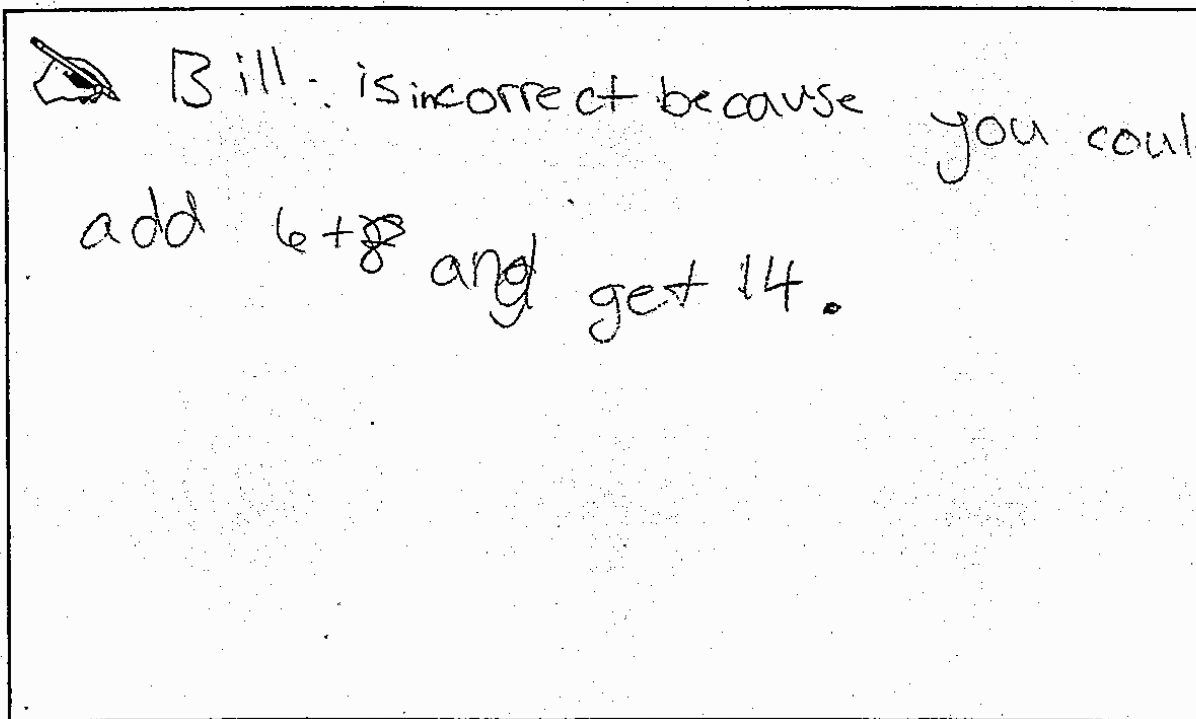 Bill is incorrect because you coul
add 6+8 and get 14.